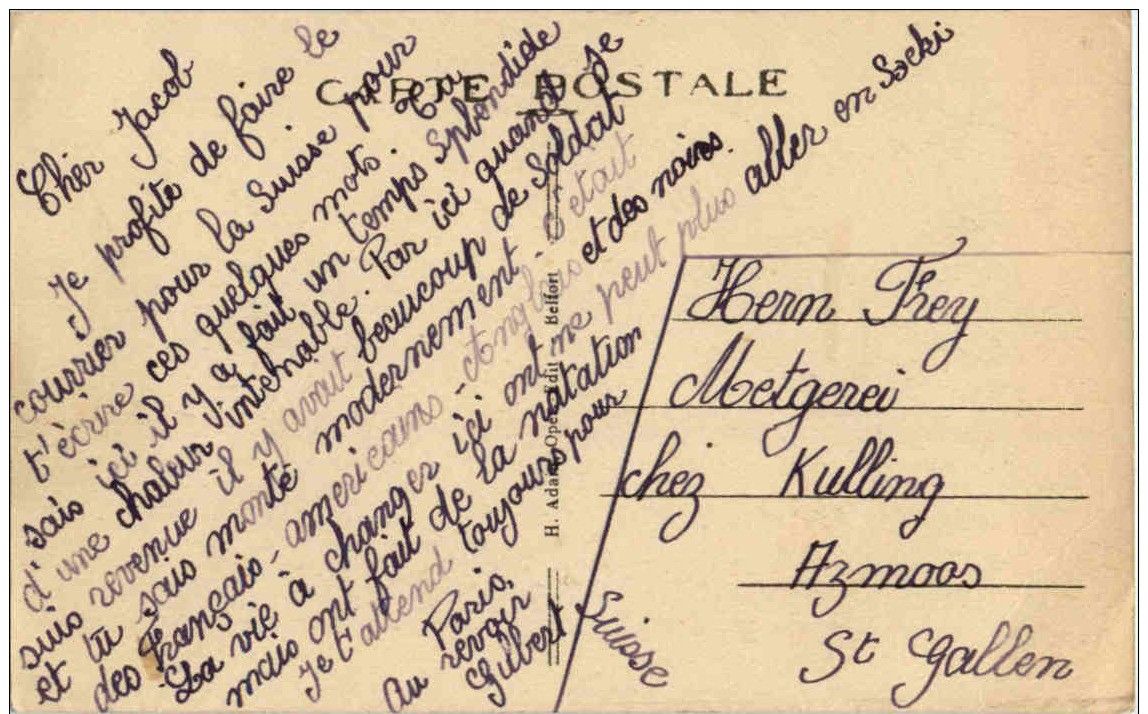 CARTE POSTALE
Cher Jacob
Je profite de faire le
courrier pour la Suisse pour
t'écrire ces quelques mots. Tu
sais ici il y a fait un temps splendide
d'une chaleur intenable. Par ici quand je
suis revenue il y avait beaucoup de Soldat
et tu sais monté modernement. C'était
des Français - americains - Anglais et des noirs.
La vie à changer ici ont ne peut plus aller en Socki
mais ont fait de la natation
Je t'attend toujours pour
Paris.
Au revoir
Hubert
H. Adam Opé. Edit. Belfort
Hern Frey
Metgerei
chez Kulling
Azmoos
St Gallen
Suisse